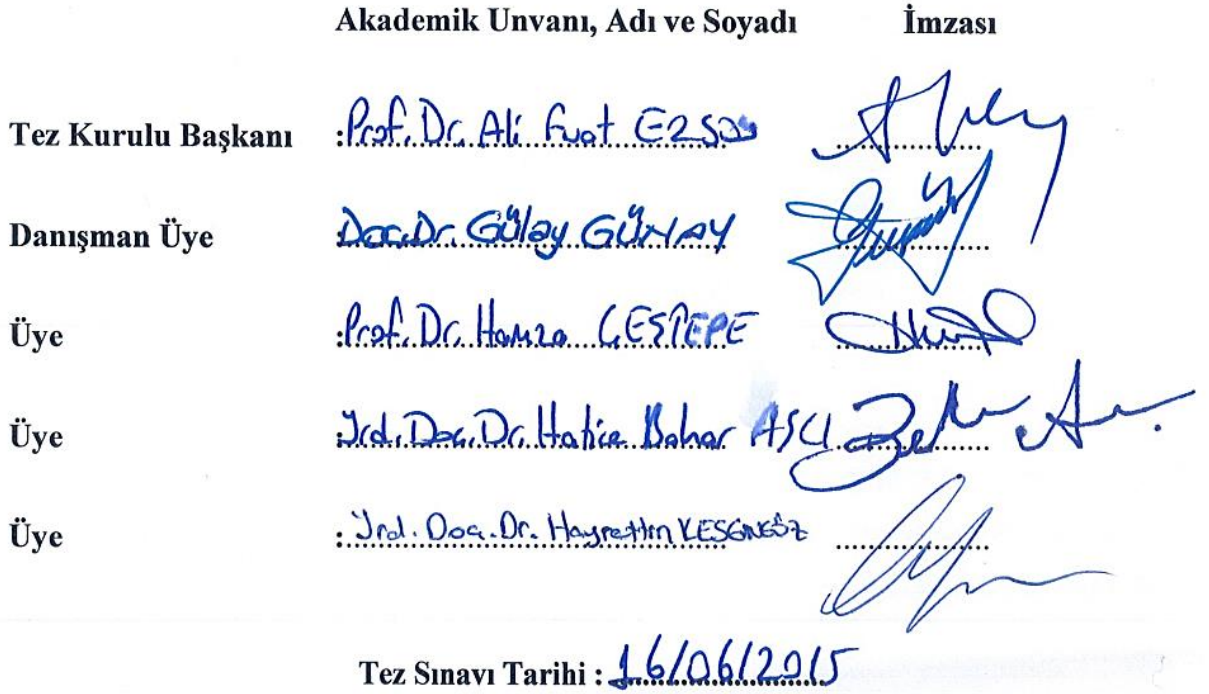 Akademik Unvanı, Adı ve Soyadı İmzası
Tez Kurulu Başkanı :Prof. Dr. Ali Fuat ERSOY
Danışman Üye :Doç. Dr. Gülay GÜNAY
Üye :Prof. Dr. Hamza ÇEŞTEPE
Üye :Yrd. Doç. Dr. Hatice Bahar AŞCI
Üye :Yrd. Doç. Dr. Hayrettin KESGİNGÖZ
Tez Sınavı Tarihi : 16/06/2015